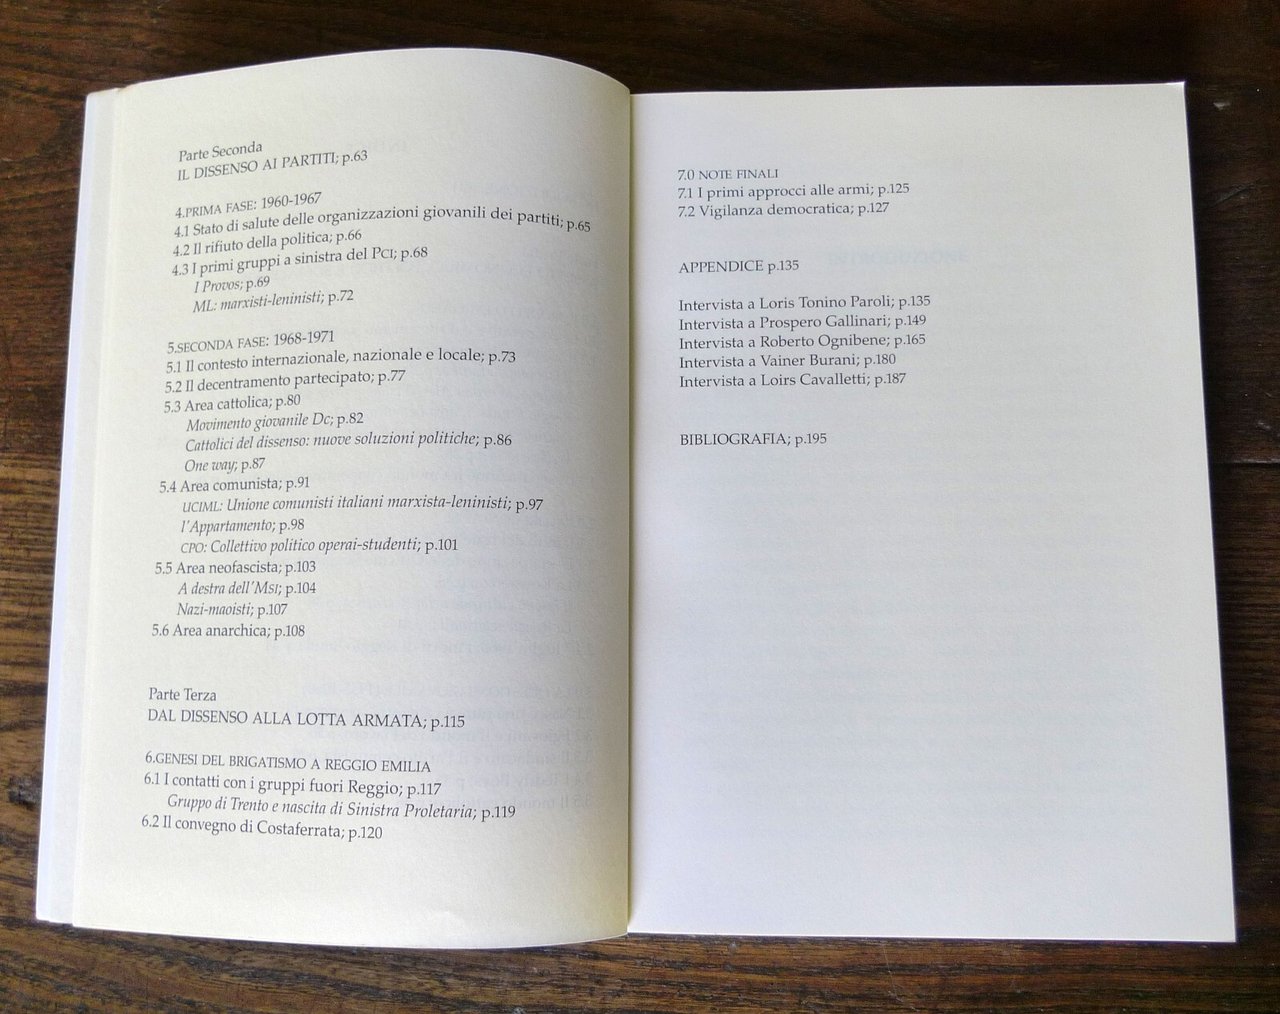 Parte Seconda
IL DISSENSO AI PARTITI; p.63
4.PRIMA FASE: 1960-1967
4.1 Stato di salute delle organizzazioni giovanili dei partiti; p.65
4.2 Il rifiuto della politica; p.66
4.3 I primi gruppi a sinistra del PCI; p.68
I Provos; p.69
ML: marxisti-leninisti; p.72
5.SECONDA FASE: 1968-1971
5.1 Il contesto internazionale, nazionale e locale; p.73
5.2 Il decentramento partecipato; p.77
5.3 Area cattolica; p.80
Movimento giovanile Dc; p.82
Cattolici del dissenso: nuove soluzioni politiche; p.86
One way; p.87
5.4 Area comunista; p.91
UCIML: Unione comunisti italiani marxista-leninisti; p.97
l'Appartamento; p.98
CPO: Collettivo politico operai-studenti; p.101
5.5 Area neofascista; p.103
A destra dell'MSI; p.104
Nazi-maoisti; p.107
5.6 Area anarchica; p.108
Parte Terza
DAL DISSENSO ALLA LOTTA ARMATA; p.115
6.GENESI DEL BRIGATISMO A REGGIO EMILIA
6.1 I contatti con i gruppi fuori Reggio; p.117
Gruppo di Trento e nascita di Sinistra Proletaria; p.119
6.2 Il convegno di Costaferrata; p.120
7.0 NOTE FINALI
7.1 I primi approcci alle armi; p.125
7.2 Vigilanza democratica; p.127
APPENDICE p.135
Intervista a Loris Tonino Paroli; p.135
Intervista a Prospero Gallinari; p.149
Intervista a Roberto Ognibene; p.165
Intervista a Vainer Burani; p.180
Intervista a Loirs Cavalletti; p.187
BIBLIOGRAFIA; p.195